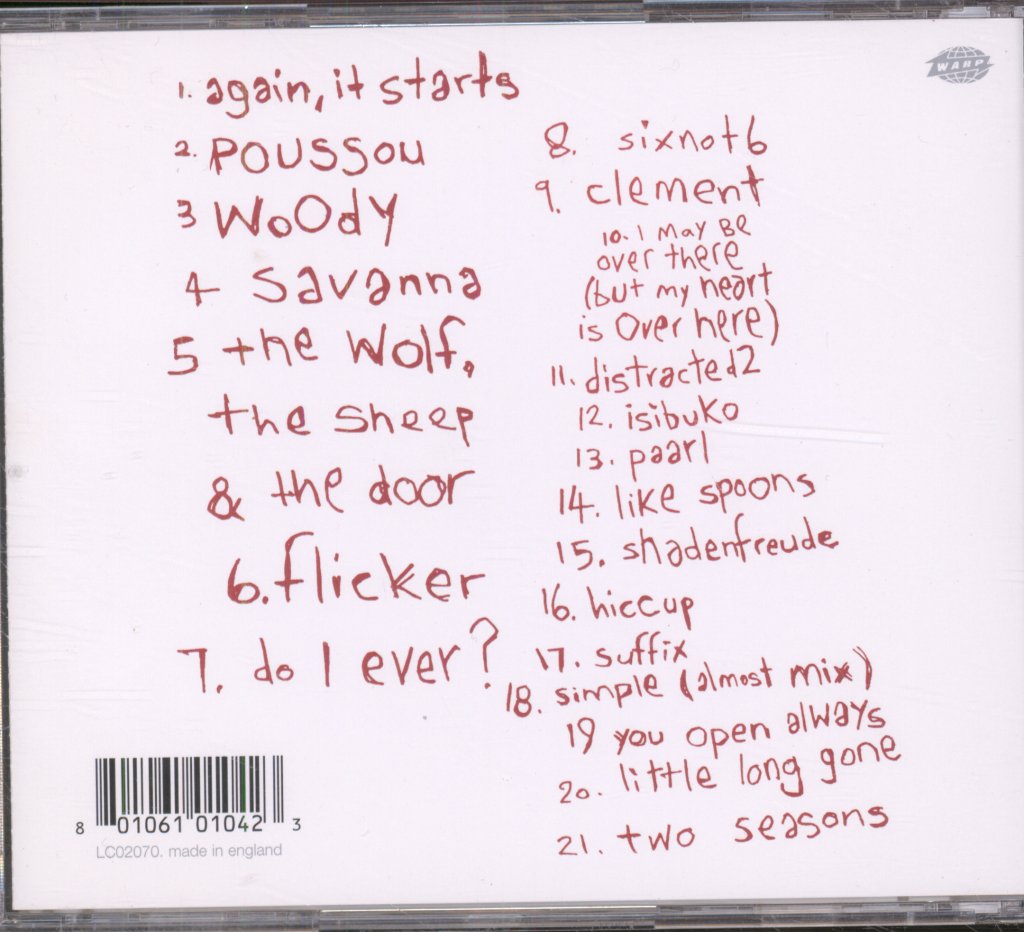 1. again, it starts
2. Poussou
3 WoOdy
4 savanna
5 the Wolf,
the sheep
& the door
6. flicker
7. do I ever?
8. sixnot6
9. clement
10. I MAy BE
over there
(but my heart
is Over here)
11. distracted2
12. isibuko
13. paarl
14. like spoons
15. shadenfreude
16. hiccup
17. suffix
18. simple (almost mix)
19 you open always
20. little long gone
21. two seasons
WARP
8 01061 01042 3
LC02070. made in england